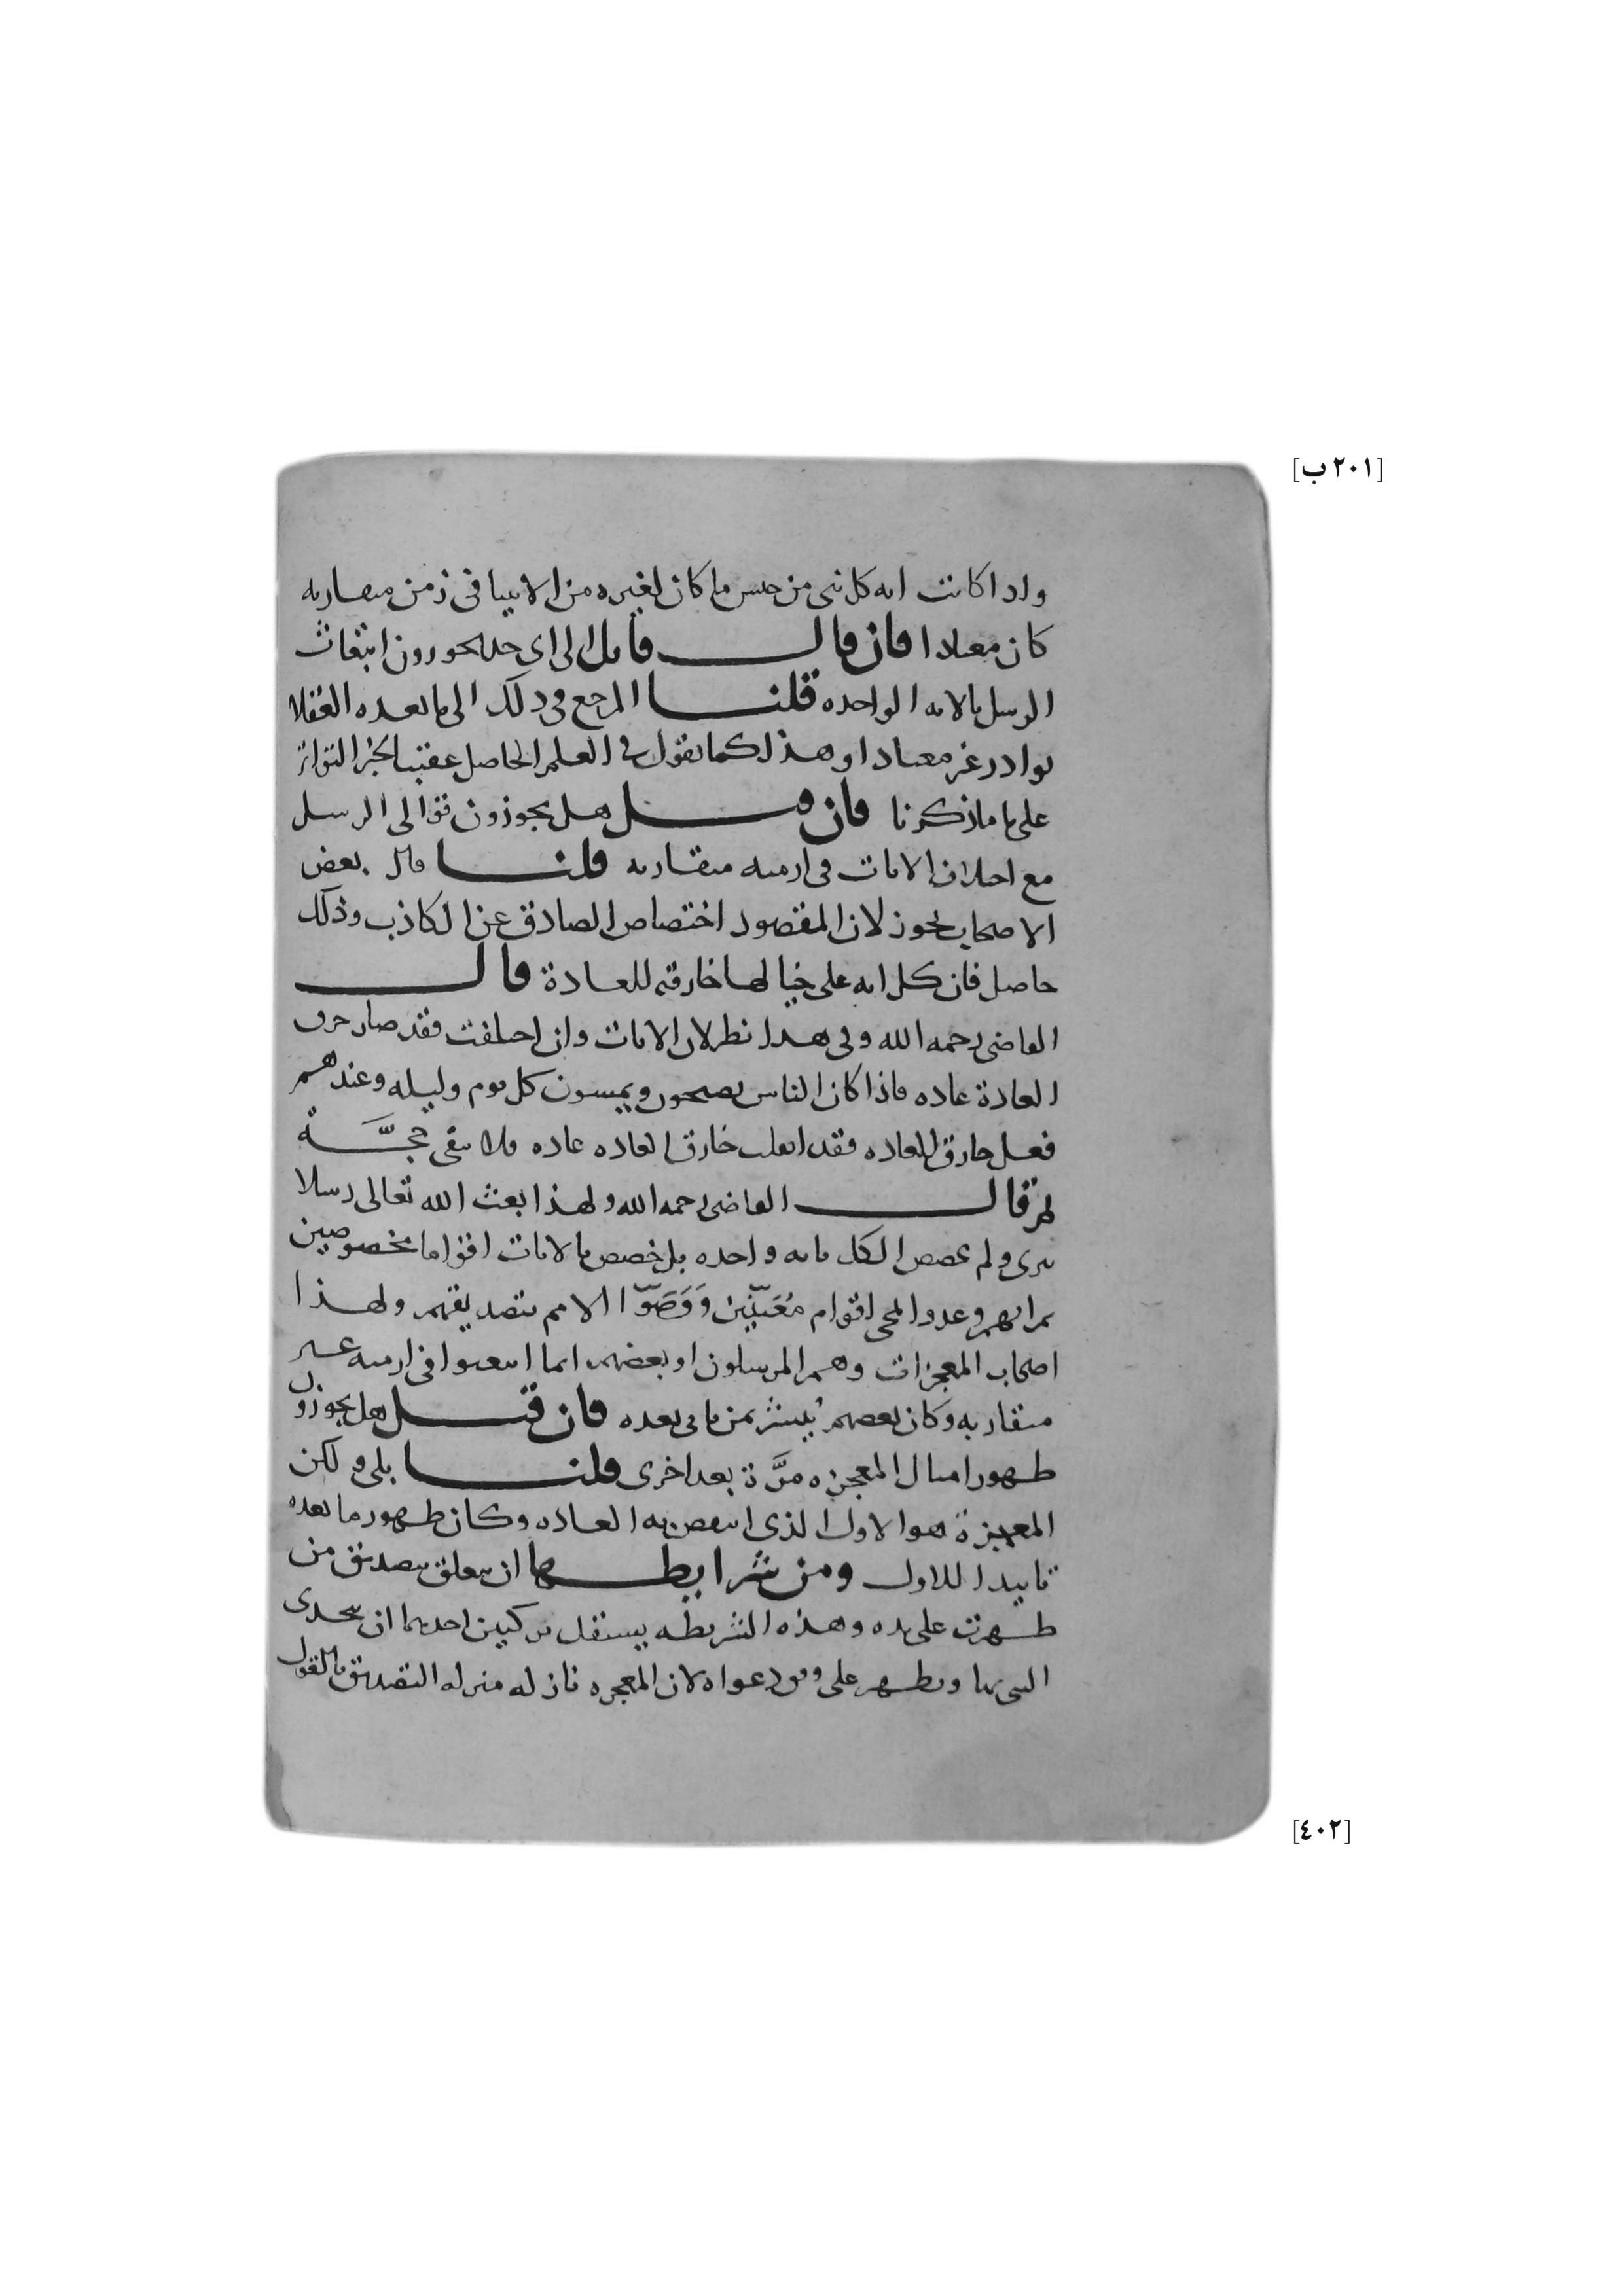 [٢٠١ ب]
واذا كانت اية كل نبي من جنس ما كان لغيره من الانبيا في زمن متقاربة
كان معتادا فان قال قايل الى اي حد تجوزون ابتعاث
الرسل بالاية الواحدة قلنا المرجع في ذلك الى ما يعده العقلا
نوادر غير معتاد او هذا كما نقول في العلم الحاصل عقيب الخبر التواتر
على ما ذكرنا فان قيل هل يجوزون توالى الرسل
مع اختلاف الايات في ازمنة متقاربة قلنا قال بعض
الاصحاب يجوز لان المقصود اختصاص الصادق عن الكاذب وذلك
حاصل فان كل اية على خيالها خارقة للعادة قال
القاضي رحمه الله وفي هذا نظر لان الايات وان اختلفت فقد صار خرق
العادة عادة فاذا كان الناس يصبحون ويمسون كل يوم وليلة وعندهم
فعل خارق للعادة فقد انقلب خارق العادة عادة فلا يبقى حجَّة
ثم قال القاضي رحمه الله ولهذا بعث الله تعالى رسلا
تترى ولم يخصص الكل باية واحدة بل خصص بالايات اقواما مخصوصين
ثم انهم وعدوا المجي اقوام مُعَيَّنِين وَوَصَّوْا الامم بتصديقهم ولهذا
اصحاب المعجزات وهم المرسلون او بعضهم انما ابتعثوا في ازمنة غير
متقاربة وكان بعضهم يُبشر بمن ياتي بعده فان قيل هل يجوزون
ظهور امثال المعجزة مرَّة بعد اخرى قلنا بلى ولكن
المعجزة هو الاول الذي انتقض به العادة وكان ظهور ما بعده
تاييدا للاول ومن شرايطها ان يتعلق بتصديق من
ظهرت على يده وهذه الشريطة يستقل بركنين احدهما ان يتحدى
النبي بها ويظهر على وفق دعواه لان المعجزة نازلة منزلة التصديق بالقول
[٤٠٢]